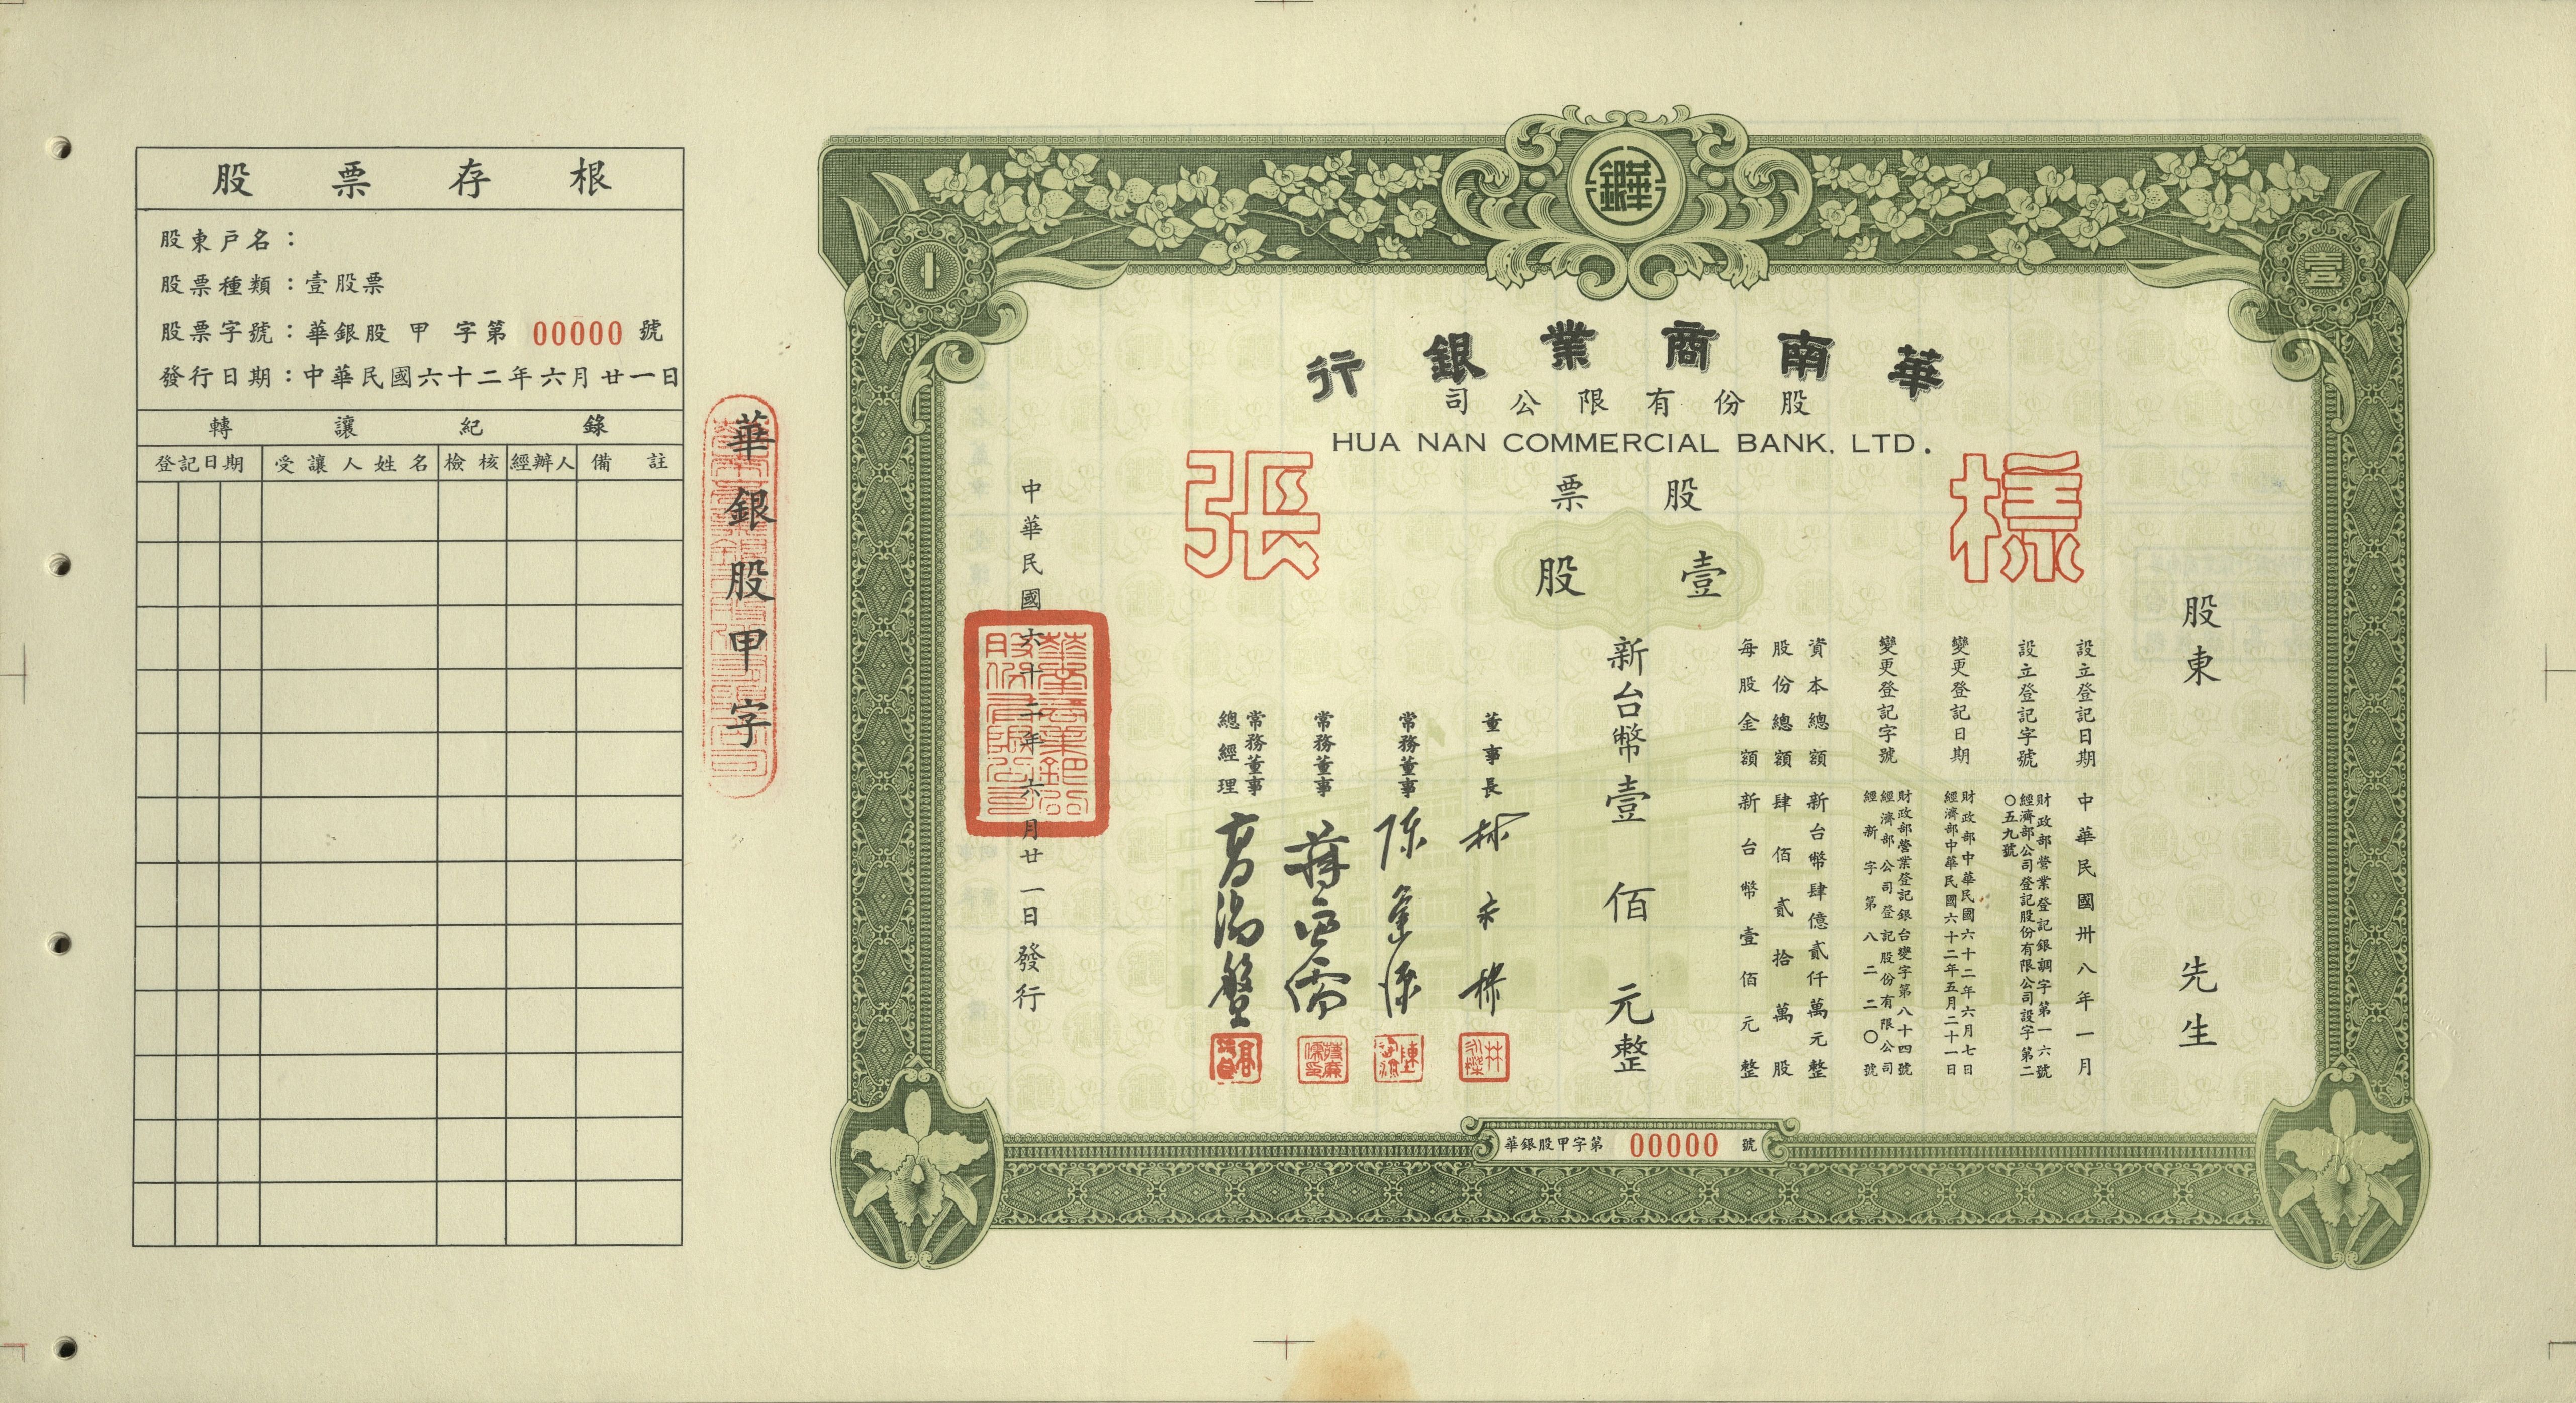 股票存根
股東戶名：
股票種類：壹股票
股票字號：華銀股 甲 字第 00000 號
發行日期：中華民國六十二年六月廿一日
轉讓紀錄
登記日期 受讓人姓名 檢核 經辦人 備註
華銀股甲字
華銀
1
壹
華南商業銀行
股份有限公司
HUA NAN COMMERCIAL BANK, LTD.
樣張
股票
壹股
股東 先生
設立登記日期 中華民國卅八年一月
設立登記字號 財政部營業登記銀調字第一六號
經濟部公司登記股份有限公司設字第二
〇五九號
變更登記日期 財政部中華民國六十二年六月七日
經濟部中華民國六十二年五月二十一日
變更登記字號 財政部營業登記銀台變字第八十四號
經濟部公司登記股份有限公司
經新字第八二二〇號
資本總額 新台幣肆億貳仟萬元整
股份總額 肆佰貳拾萬股
每股金額 新台幣壹佰元整
新台幣壹佰元整
董事長
常務董事
常務董事
常務董事
總經理
中華民國六十二年六月廿一日發行
華銀股甲字第 00000 號